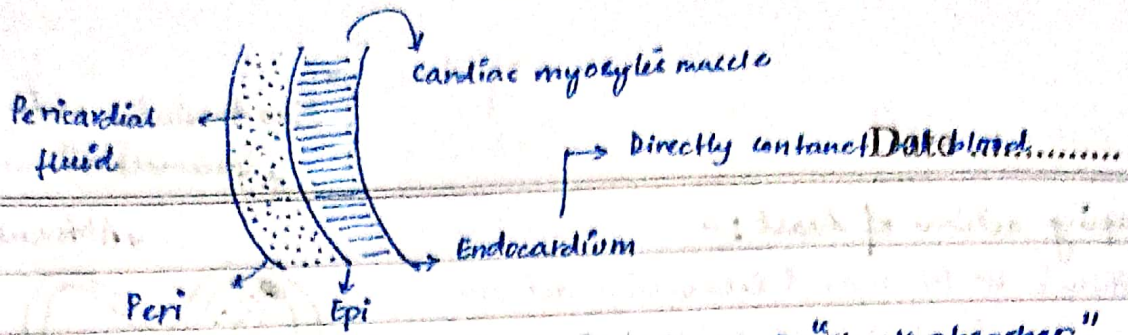 Cardiac myocytes muscle
Pericardial
fluid
Directly contanct Date blood..........
Endocardium
Peri
Epi